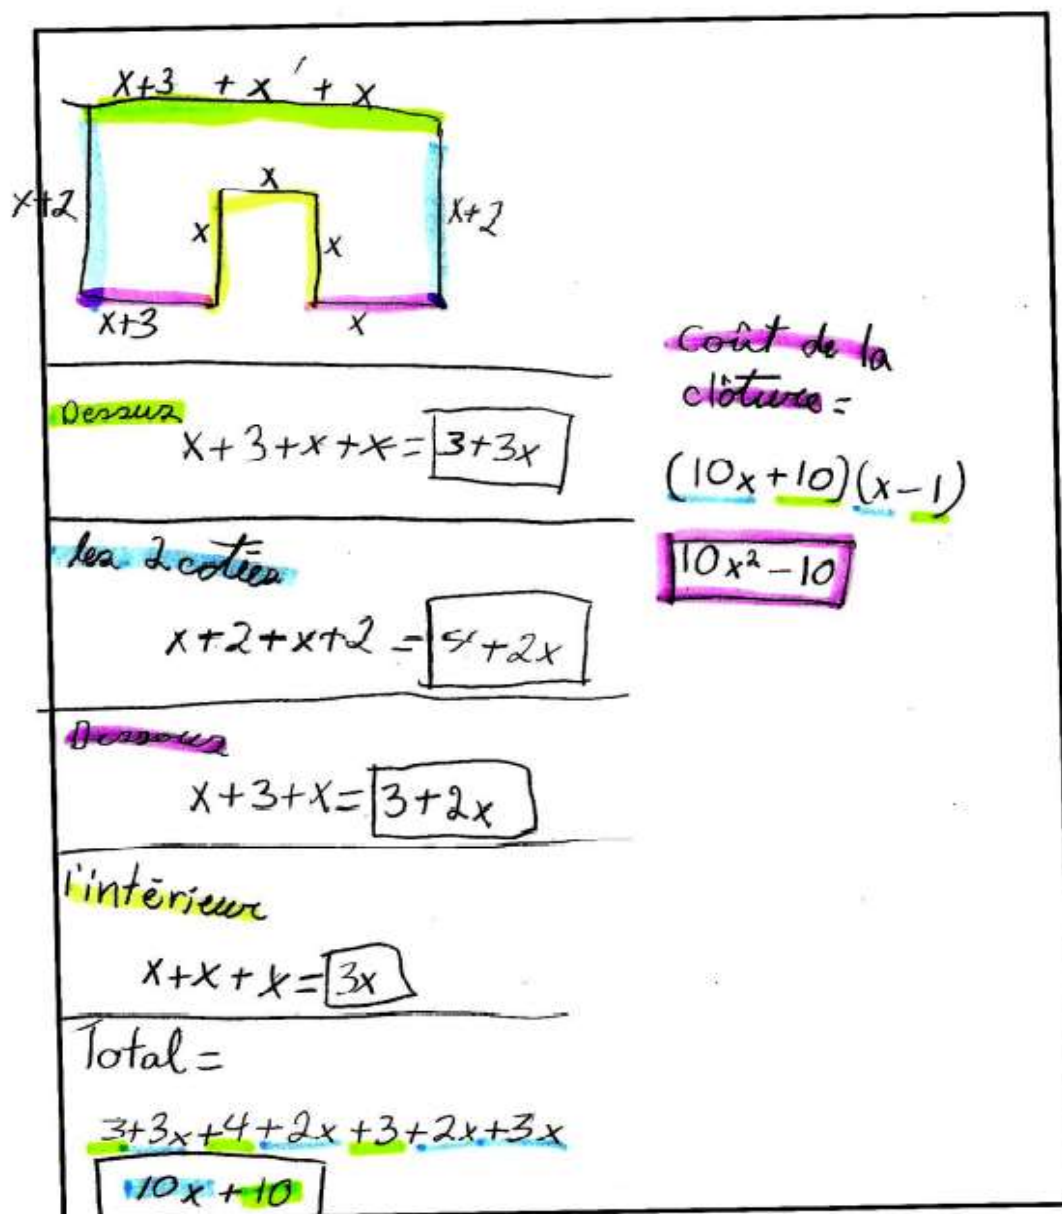 x+3 + x + x
x
x+2
x
x
x+2
x+3
x
Dessus
x+3+x+x= 3+3x
les 2 cotées
x+2+x+2 = 4+2x
Dessous
x+3+x= 3+2x
l'intérieur
x+x+x= 3x
Total=
3+3x+4+2x+3+2x+3x
10x+10
Coût de la
clôture=
(10x+10)(x-1)
10x²-10